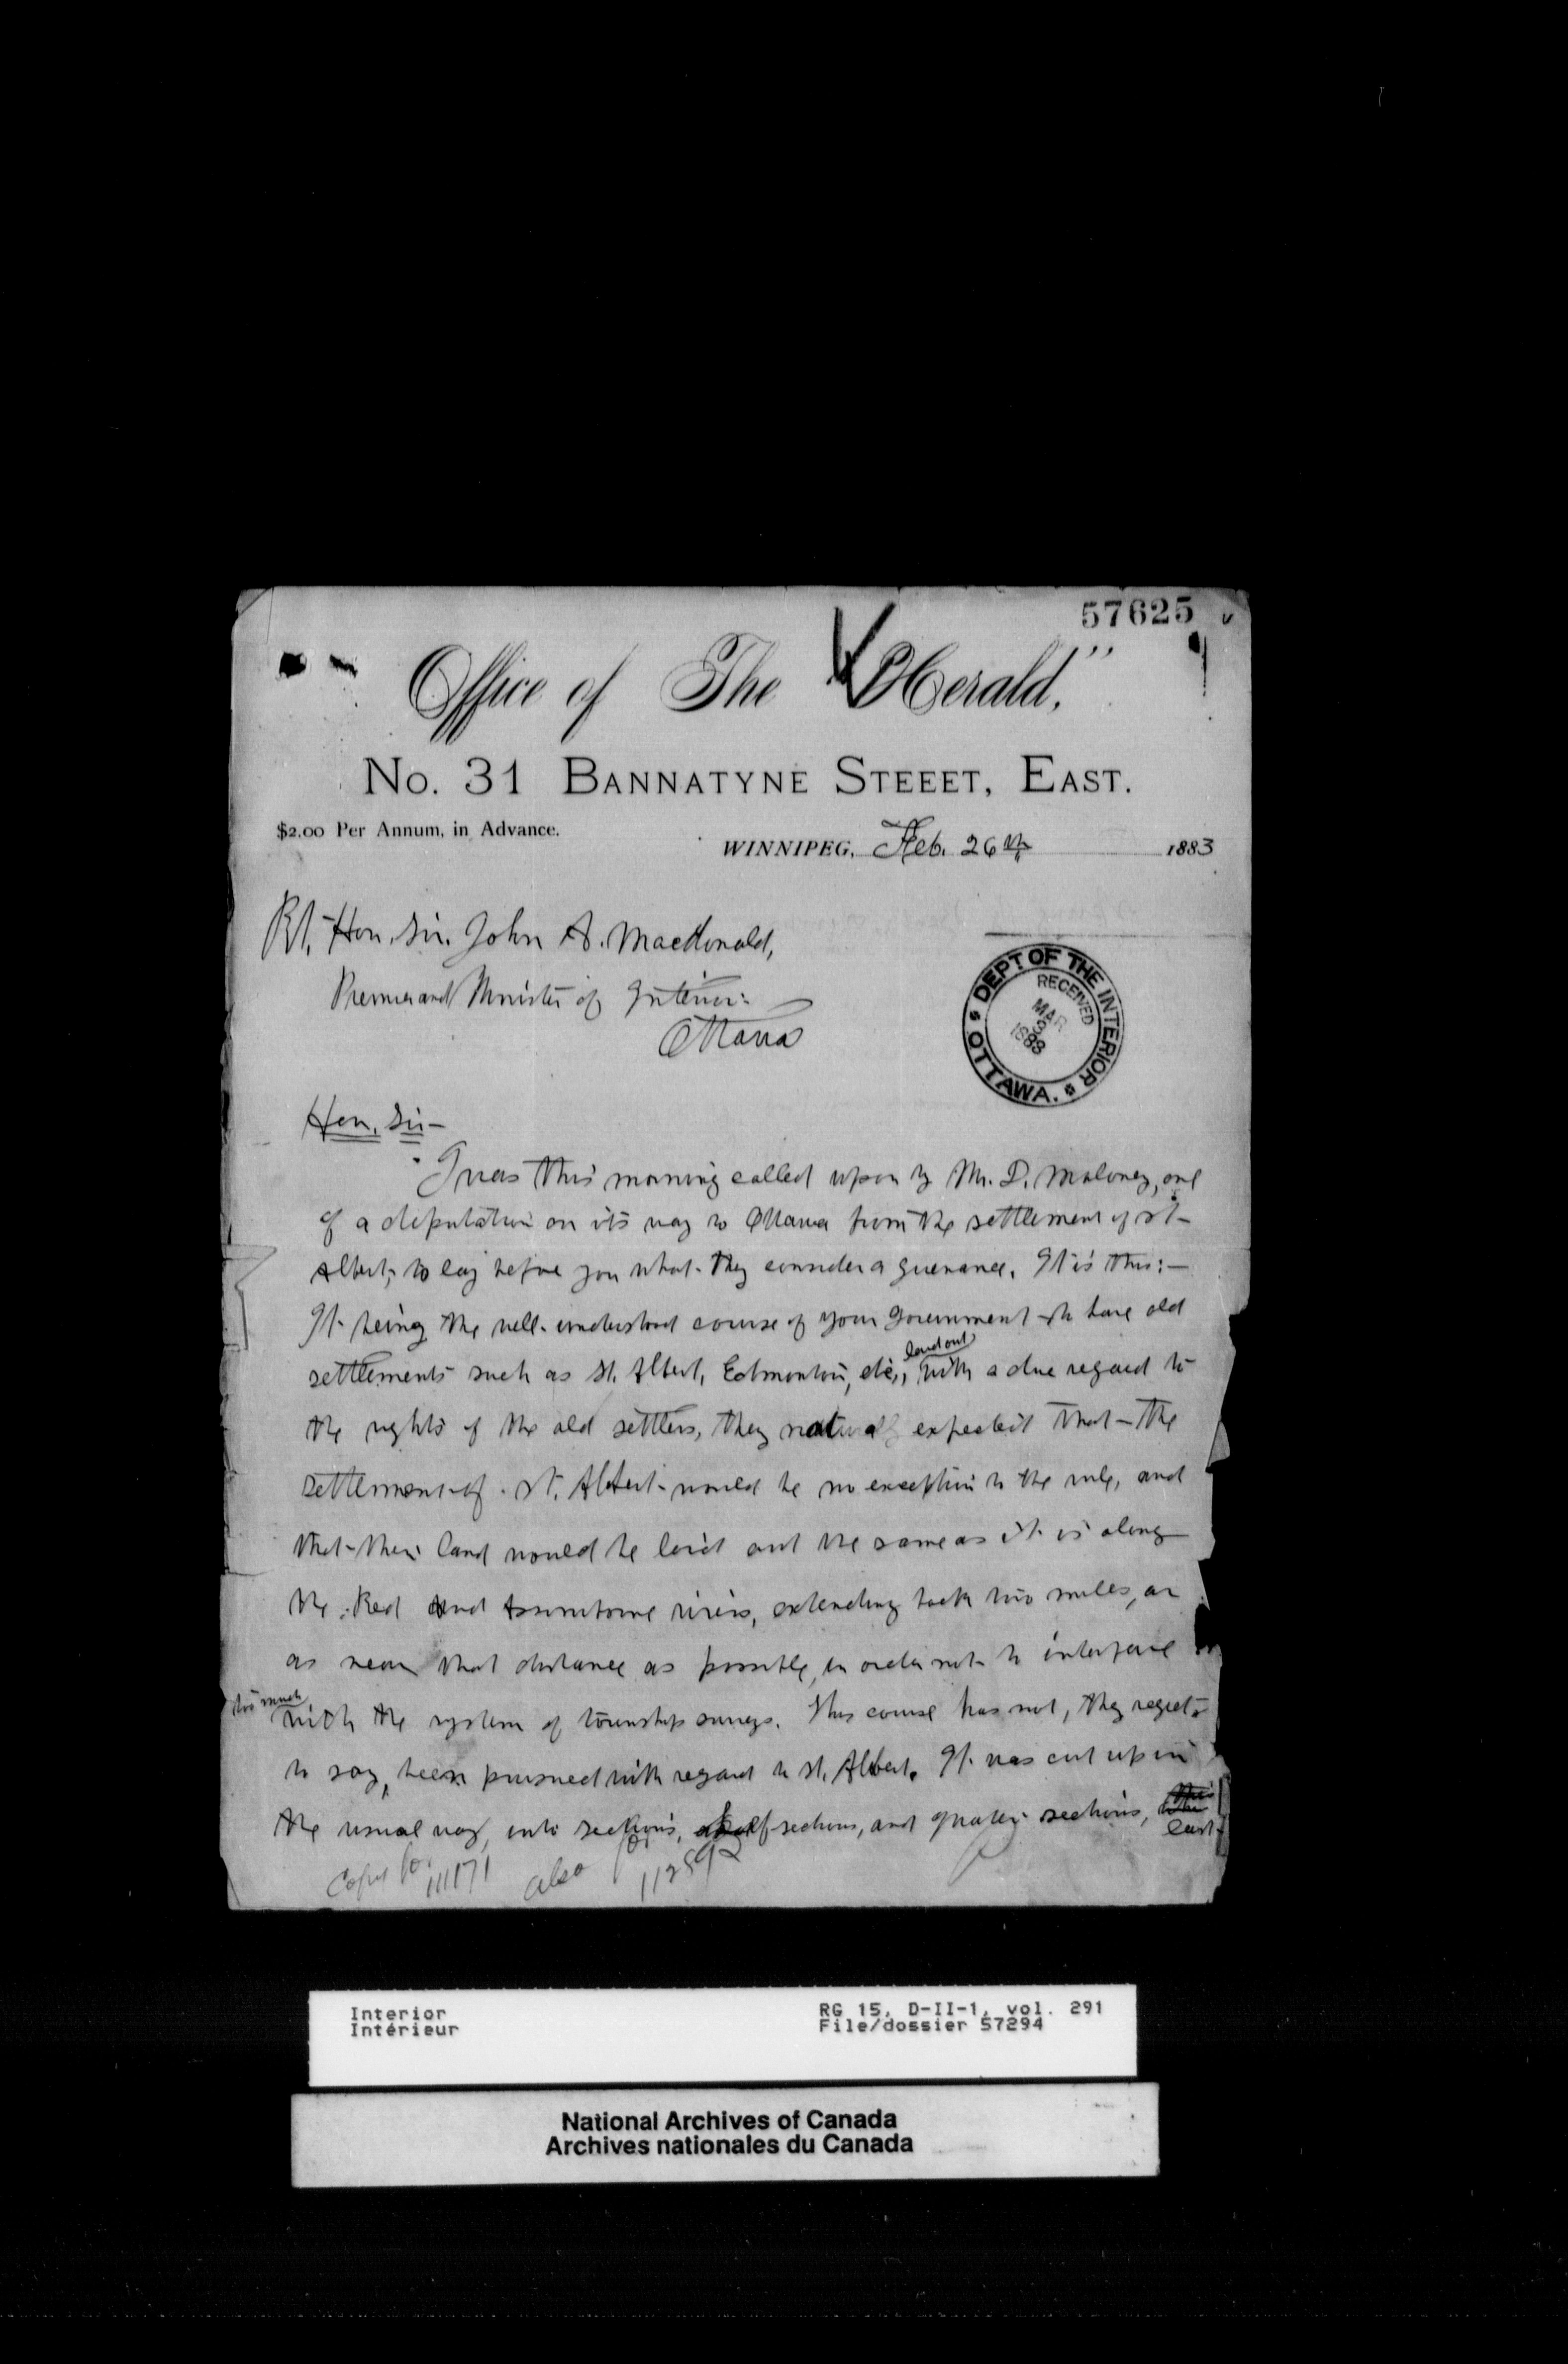 57625
Office of The "Herald,"
No. 31 Bannatyne Steeet, East.
$2.00 Per Annum, in Advance.
WINNIPEG, Feb. 26th 1883
Rt. Hon. Sir. John A. Macdonald,
Premier and Minister of Interior.
Ottawa
DEPT OF THE INTERIOR
RECEIVED
MAR
1883
OTTAWA.
Hon. Sir—
I was this morning called upon by Mr. D. Maloney, one
of a deputation on its way to Ottawa from the settlement of St-
Albert, to lay before you what they consider a grievance. It is this:—
It being the well-understood course of your Government to have old
settlements such as St. Albert, Edmonton, etc., laid out with a due regard to
the rights of the old settlers, they naturally expected that the
settlement of St. Albert would be no exception to the rule, and
that their land would be laid out the same as it is along
the Red and Assiniboine rivers, extending back two miles, or
as near that distance as possible, in order not to interfere
too much with the system of township surveys. This course has not, they regret
to say, been pursued with regard to St. Albert. It was cut up in
the usual way, into sections, half sections, and quarter sections,
last
Copy to 111171 also for 112592
Interior
Intérieur
RG 15, D-II-1, vol. 291
File/dossier 57294
National Archives of Canada
Archives nationales du Canada